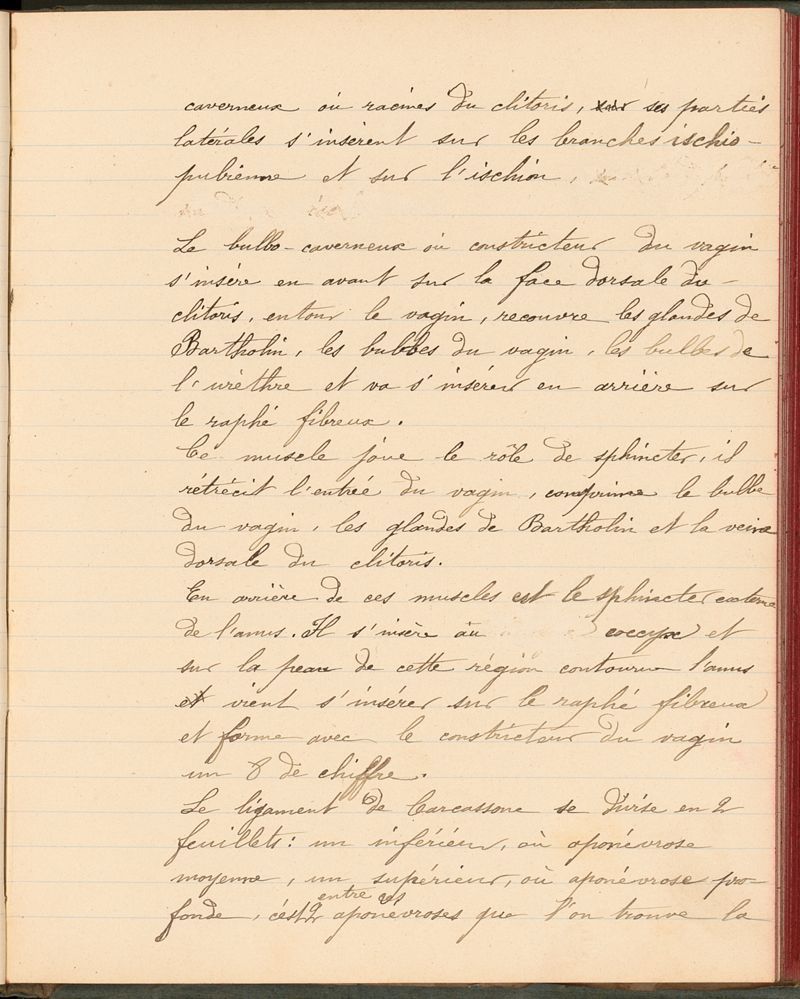 caverneux où racines du clitoris, ses parties
latérales s'insèrent sur les branches ischio-
pubienne et sur l'ischion,
Le bulbo-caverneux où constricteur du vagin
s'insère en avant sur la face dorsale du
clitoris, entour le vagin, recouvre les glandes de
Bartholin, les bulbes du vagin, les bulbes de
l'urèthre et va s'insérer en arrière sur
le raphé fibreux.
Ce muscle joue le rôle de sphincter, il
rétrécit l'entrée du vagin, comprime le bulbe
du vagin, les glandes de Bartholin et la veine
dorsale du clitoris.
En arrière de ces muscles est le sphincter externe
de l'anus. Il s'insère au coccyx et
sur la peau de cette région contourne l'anus
et vient s'insérer sur le raphé fibreux
et forme avec le constricteur du vagin
un 8 de chiffre.
Le ligament de Carcassone se divise en 2
feuillets: un inférieur, où aponévrose
moyenne, un supérieur, où aponévrose pro-
fonde, c'est entre ces 2 aponévroses que l'on trouve la